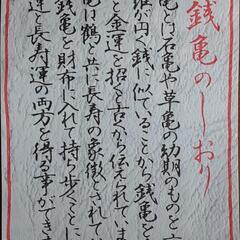 銭亀のしおり
亀とは石亀や草亀の幼期のものを
が円く銭に似ていることから銭亀と
と金運を招くと古から伝えられてま
亀は鶴と共に長寿の象徴とされて
銭亀を財布に入れて持ち歩くことに
運と長寿運の両方を得る事ができ